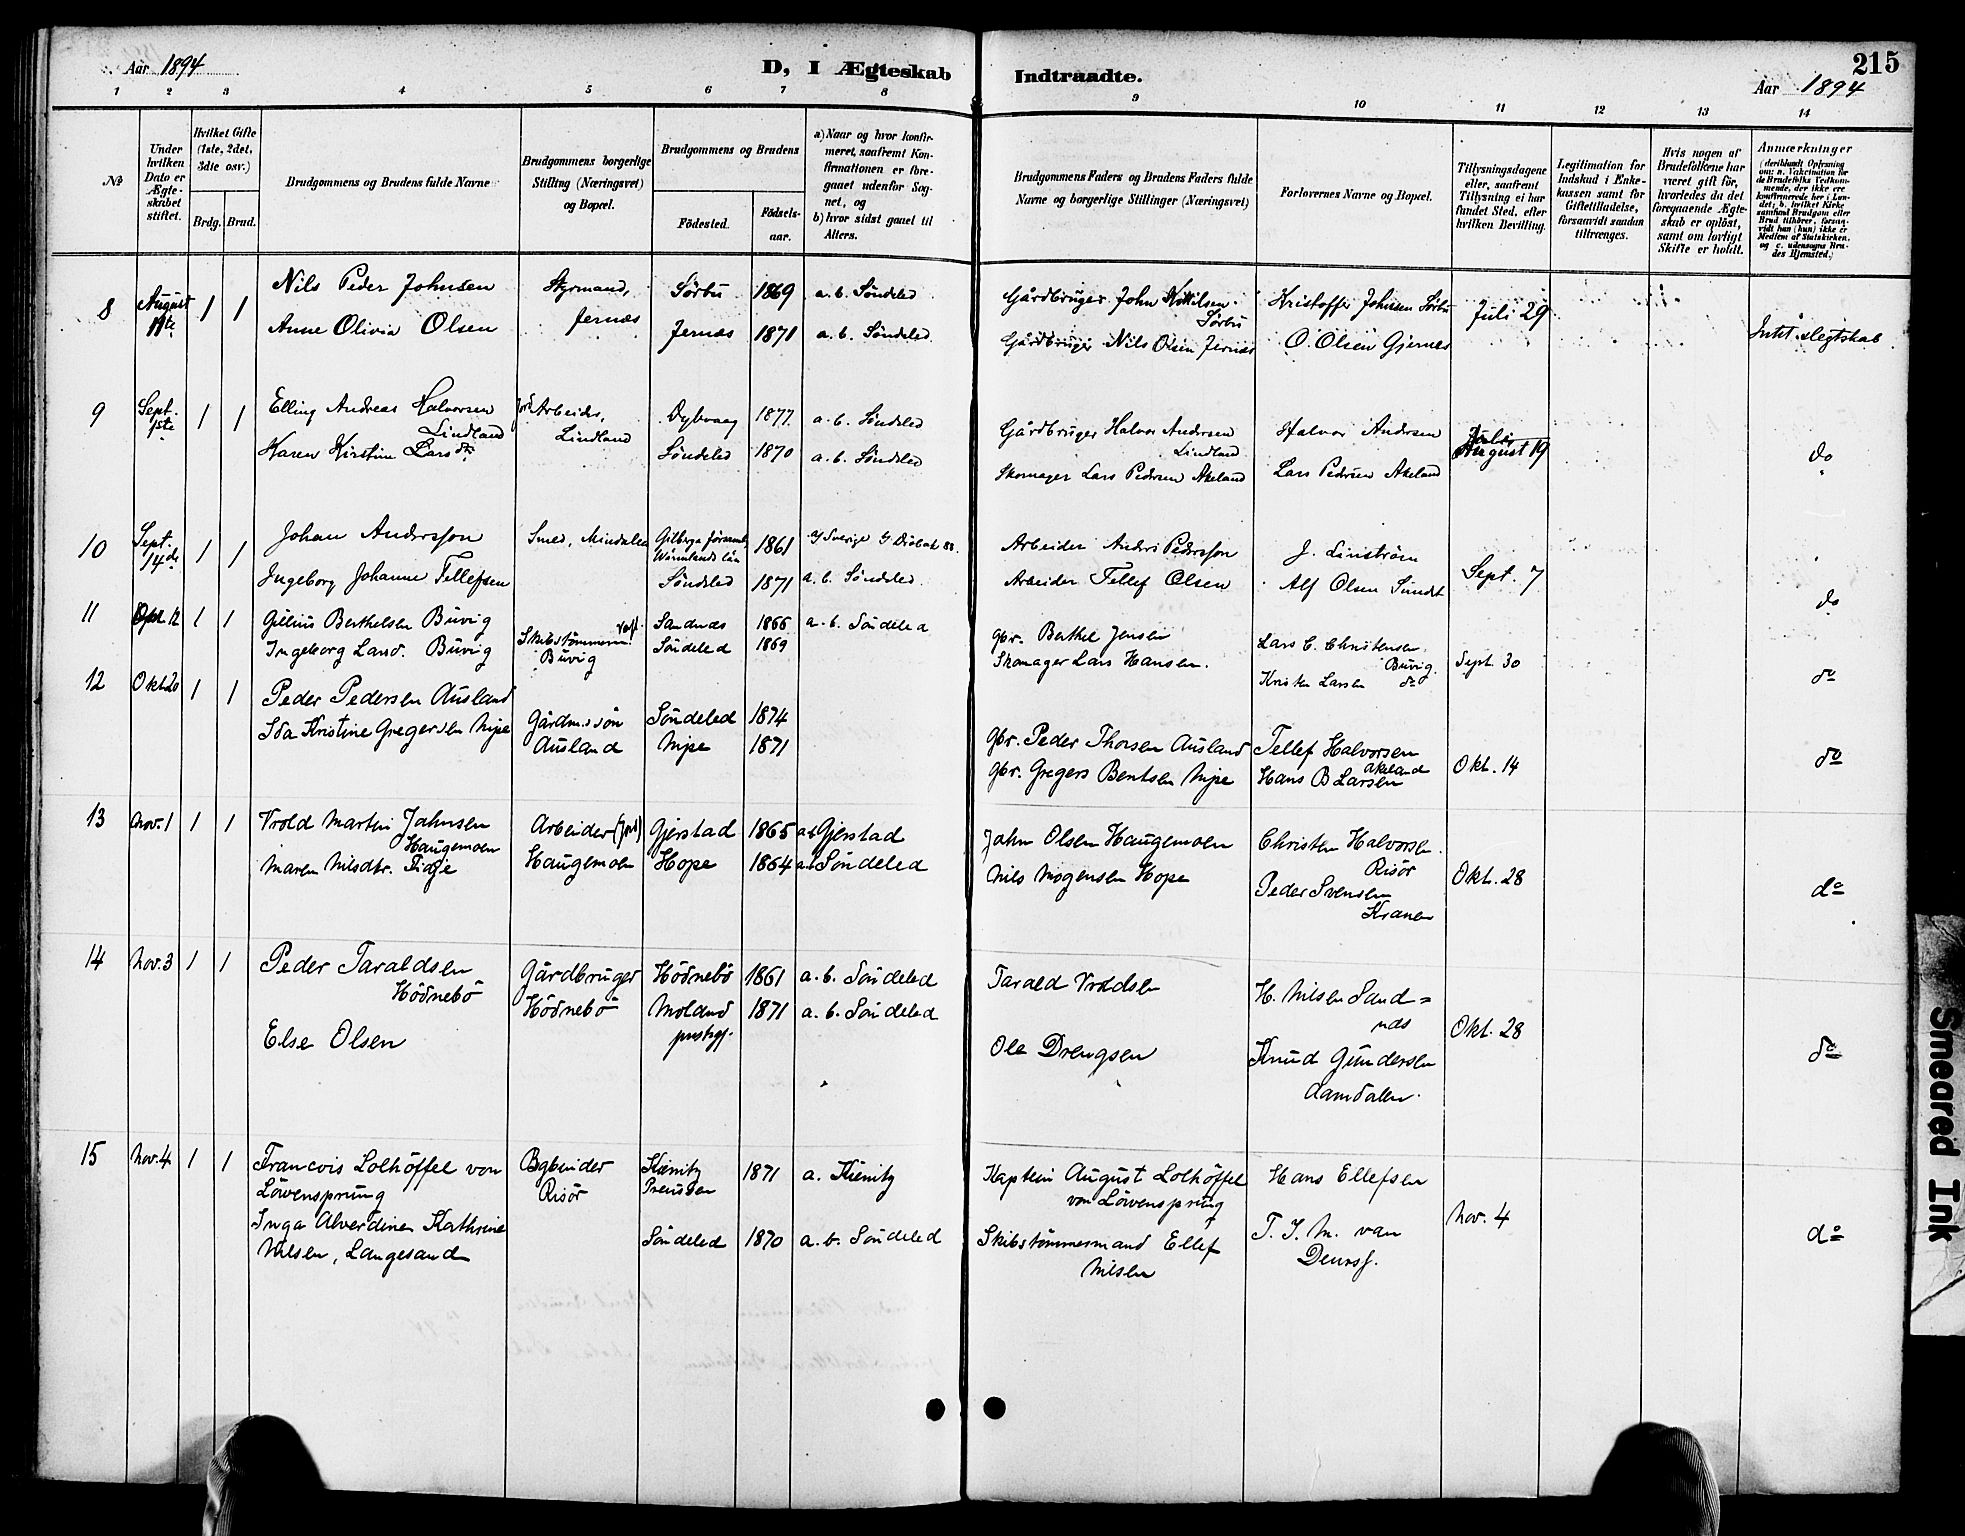 Aar 1894
D, I Ægteskab Indtraadte.
215
Aar 1894
1 2 3 4 5 6 7 8 9 10 11 12 13 14
№
Under hvilken Dato er Ægteskabet stiftet.
Hvilket Gifte (1ste, 2det, 3die osv.)
Brdg. Brud.
Brudgommens og Brudens fulde Navne
Brudgommens borgerlige Stilling (Næringsvei) og Bopæl.
Brudgommens og Brudens
Fødested.
Fødselsaar.
a) Naar og hvor konfirmeret, saafremt Konfirmationen er foregaaet udenfor Sognet, og
b) hvor sidst gaaet til Alters.
Brudgommens Faders og Brudens Faders fulde Navne og borgerlige Stillinger (Næringsvei)
Forlovernes Navne og Bopæl.
Tillysningsdagene eller, saafremt Tillysning ei har fundet Sted, efter hvilken Bevilling.
Legitimation for Indskud i Enkekassen samt for Giftetilladelse, forsaavidt saadan tiltrænges.
Hvis nogen af Brudefolkene har været gift før, hvorledes da det foregaaende Ægteskab er opløst, samt om lovligt Skifte er holdt.
Anmærkninger
8 August 11te 1 1 Nils Peder Johnsen Styrmand, Sørbu 1869 a. b. Søndeled Gårdbruger John Nottilsen Sørbu Kristoffer Johnsen Sørbu Juli 29
Anne Olivia Olsen Jernæs Jernæs 1871 a. b. Søndeled Gårdbruger Nils Olsen Jernæs O. Olsen Gjernes Intet slegtskab
9 Sept. 1ste 1 1 Elling Andreas Halvorsen Lindland Jord Arbeider, Lindland Dybvaag 1877 a. b. Søndeled Gårdbruger Halvor Andersen Lindland Halvor Andersen August 19
Karen Kirstine Larsdtr. Søndeled 1870 a. b. Søndeled Skomager Lars Pedersen Akeland Lars Pedersen Akeland do
10 Sept. 14de 1 1 Johan Andersson Smed, Mindalen Gilberga församl. Wärmlands län 1861 a/ Sverige b/ Drøbak 88. Arbeider Anders Pedersson J. Linström Sept. 7
Ingeborg Johanne Tellefsen Søndeled 1871 a. b. Søndeled Arbeider Tellef Olsen Alf Olsen Sundt do
11 12 1 1 Gellius Berthelsen Buvig Skibstømmerm. Buvig Sandnes 1866 a. b. Søndeled gbr. Berthel Jensen Lars C. Christensen Buvig Sept. 30
Ingeborg Larsd. Buvig Søndeled 1869 Skomager Lars Hansen. Kristen Larsen do do
12 Okt 20 1 1 Peder Pedersen Ausland Gårdm.søn Ausland Søndeled 1874 gbr. Peder Thorsen Ausland Tellef Halvorsen Akeland Okt. 14
Ida Kristine Gregersen Nipe Nipe 1871 gbr. Gregers Bentsen Nipe Hans B Larsen do
13 Nov. 1 1 1 Vrold Martin Johnsen Haugemoen Arbeider (Jord) Haugemoen Gjerstad 1865 a.b Gjerstad John Olsen Haugemoen Christen Halvorsen Risør Okt. 28
Maren Nilsdtr. Fidje Hope 1864 a.b Søndeled Nils Mogensen Hope Peder Svensen Kranen do
14 Nov. 3 1 1 Peder Taraldsen Hødnebø Gårdbruger Hødnebø Hødnebø 1861 a. b. Søndeled Tarald Vroldsen H. Nilsen Sandnæs Okt. 28
Else Olsen Moland prestgj. 1871 a. b. Søndeled Ole Drengsen Knud Gundersen Aamdalen. do
15 Nov. 4 1 1 Francois Lolhöffel von Löwensprung Bgbinder Risør Kienitz Preussen 1871 a. Kienitz Kaptein August Lolhöffel von Löwensprung Hans Ellefsen Nov. 4
Inga Alverdine Kathrine Nilsen, Langesand Søndeled 1870 a. b. Søndeled Skibstømmermand Ellef Nilsen T. J. M. van Deurs. do
Smeared Ink